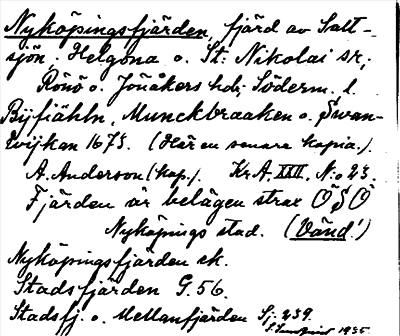 Nyköpingsfjärden, fjärd av Salt-
sjön, Helgona o. St. Nikolai sr,
Rönö o. Jönåkers hdr, Söderm. l.
Byfiähln, Munckbraaken o. Swan-
wijkan 1673. (Här en senare kopia.).
A. Anderson (kop.). Kr.A. XXII, N:o 23.
Fjärden är belägen strax Ö S Ö
Nyköpings stad. (Vänd!)
Nyköpingsfjärden ek.
Stadsfjärden G. 56.
Stadsfj. o. Mellanfjärden Sj. 239.
1935.